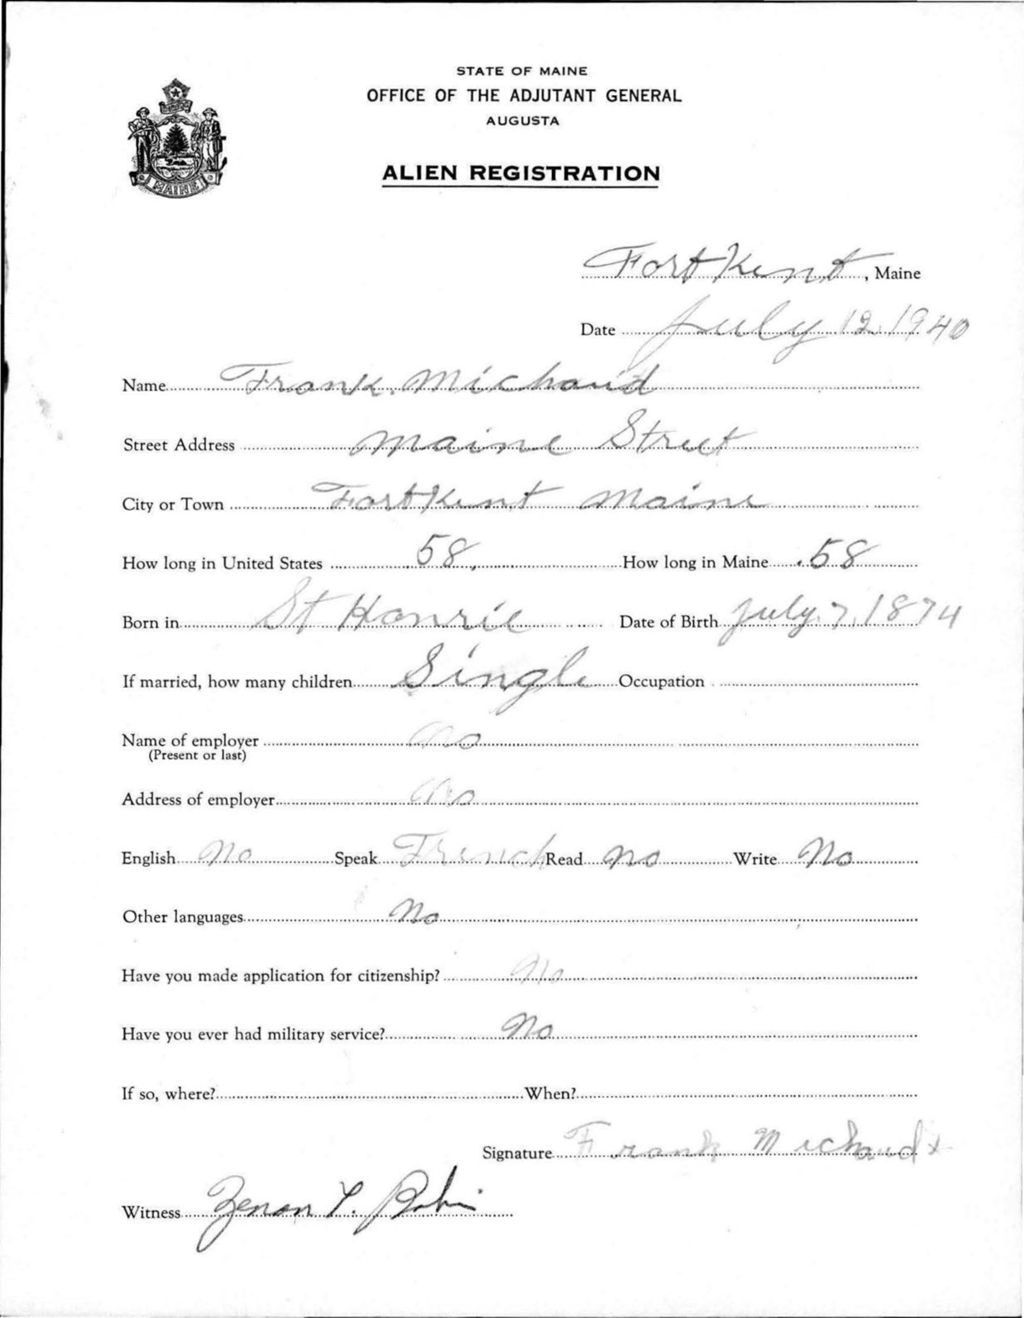 STATE OF MAINE
OFFICE OF THE ADJUTANT GENERAL
AUGUSTA
ALIEN REGISTRATION
MAINE
Fort Kent, Maine
Date July 12, 1940
Name Frank Michaud
Street Address Maine Street
City or Town Fort Kent Maine
How long in United States 58, How long in Maine 58
Born in St Honrie Date of Birth July 7, 1874
If married, how many children Single Occupation
Name of employer No
(Present or last)
Address of employer No
English No Speak French Read no Write No
Other languages No
Have you made application for citizenship? No
Have you ever had military service? No
If so, where? When?
Signature Frank Michaud x
Witness Zenon L. Robin